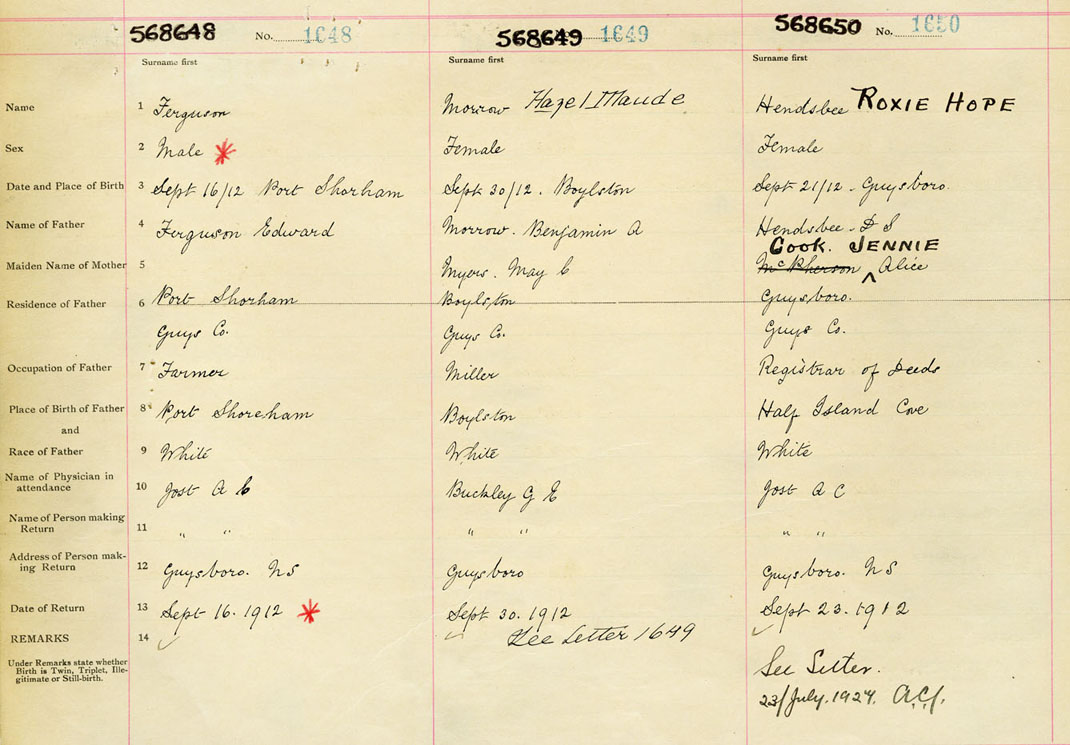 568648 No. 1648 568649 1649 568650 No. 1650
Surname first Surname first Surname first
Name 1 Ferguson Morrow Hazel Maude Hendsbee ROXIE HOPE
Sex 2 Male * Female Female
Date and Place of Birth 3 Sept 16/12 Port Shorham Sept 30/12. Boylston Sept 21/12 - Guysboro.
Name of Father 4 Ferguson Edward Morrow. Benjamin A Hendsbee - D S
Cook. JENNIE
Maiden Name of Mother 5 Myers. May C McPherson ^ Alice
Residence of Father 6 Port Shorham Boylston Guysboro.
Guys Co. Guys Co. Guys Co.
Occupation of Father 7 Farmer Miller Registrar of Deeds
Place of Birth of Father 8 Port Shoreham Boylston Half Island Cove
and
Race of Father 9 White White White
Name of Physician in
attendance 10 Jost A C Buckley G E Jost A C
Name of Person making
Return 11 " " " " " "
Address of Person mak-
ing Return 12 Guysboro. NS Guysboro Guysboro. NS
Date of Return 13 Sept 16. 1912 * Sept 30. 1912 Sept 23. 1912
REMARKS 14 ✓ ✓ See Letter 1649 ✓
Under Remarks state whether
Birth is Twin, Triplet, Ille-
gitimate or Still-birth.
See Letter.
23/July. 1927. A.C.J.